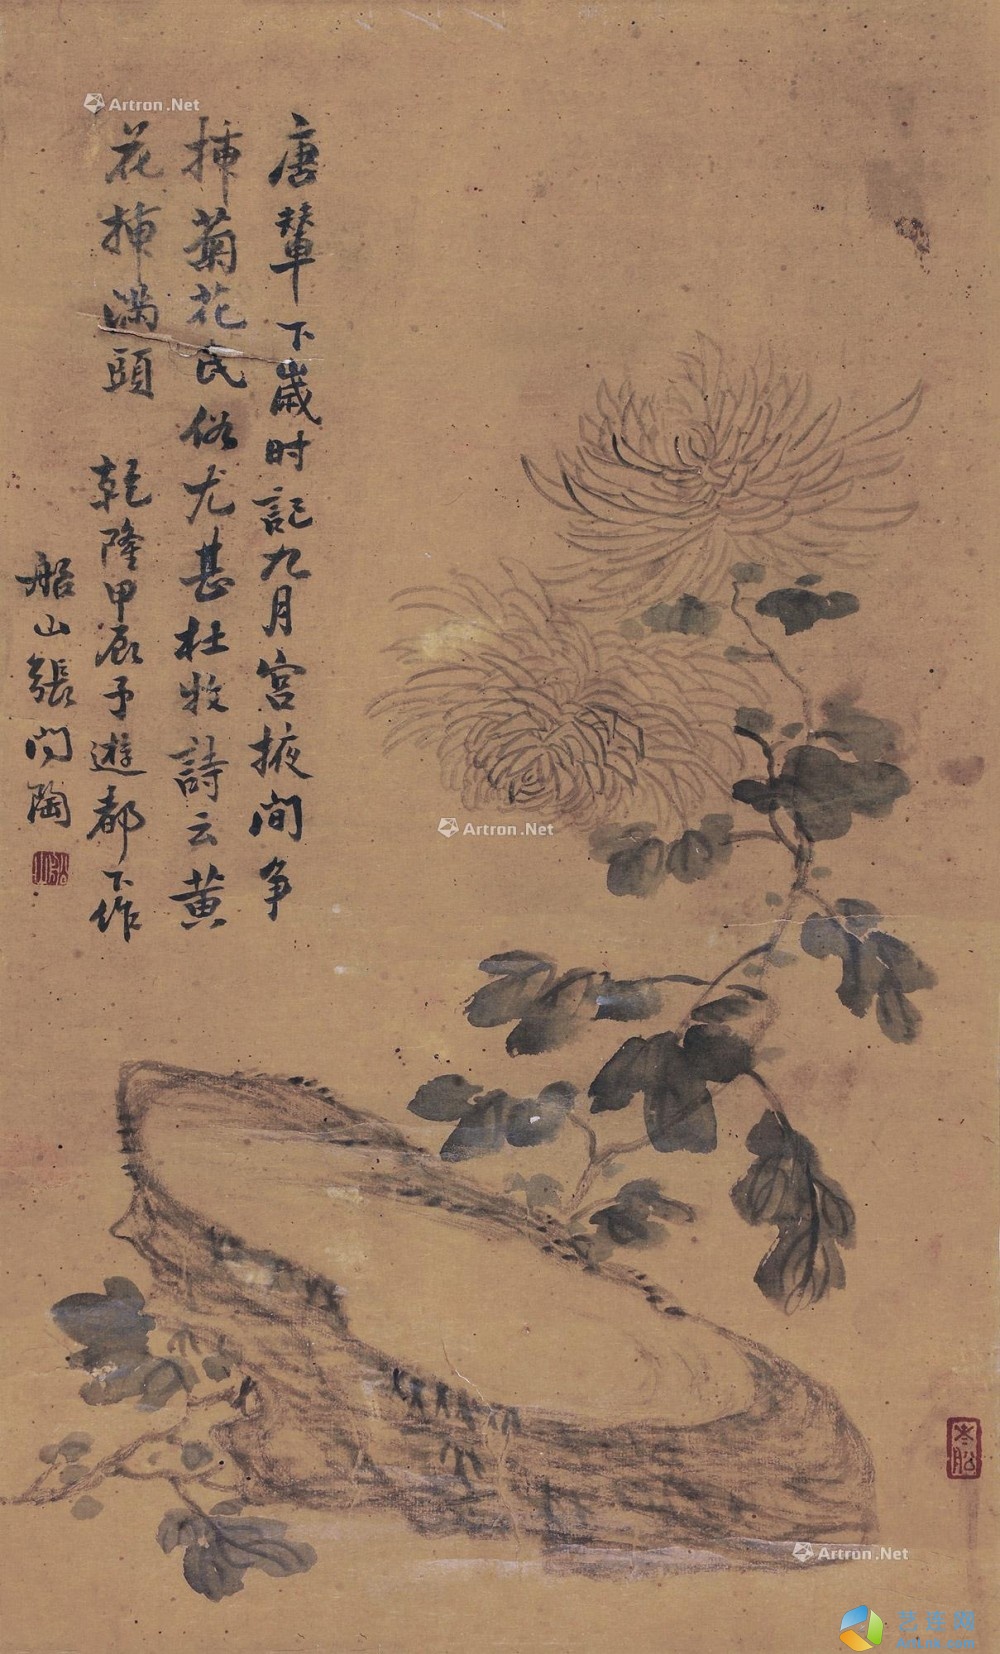 唐輦下歲时記九月宮掖间争
插菊花民俗尤甚杜牧詩云黄
花插满頭 乾隆甲辰予遊都下作
船山張问陶
Artron.Net
Artron.Net
Artron.Net
艺连网